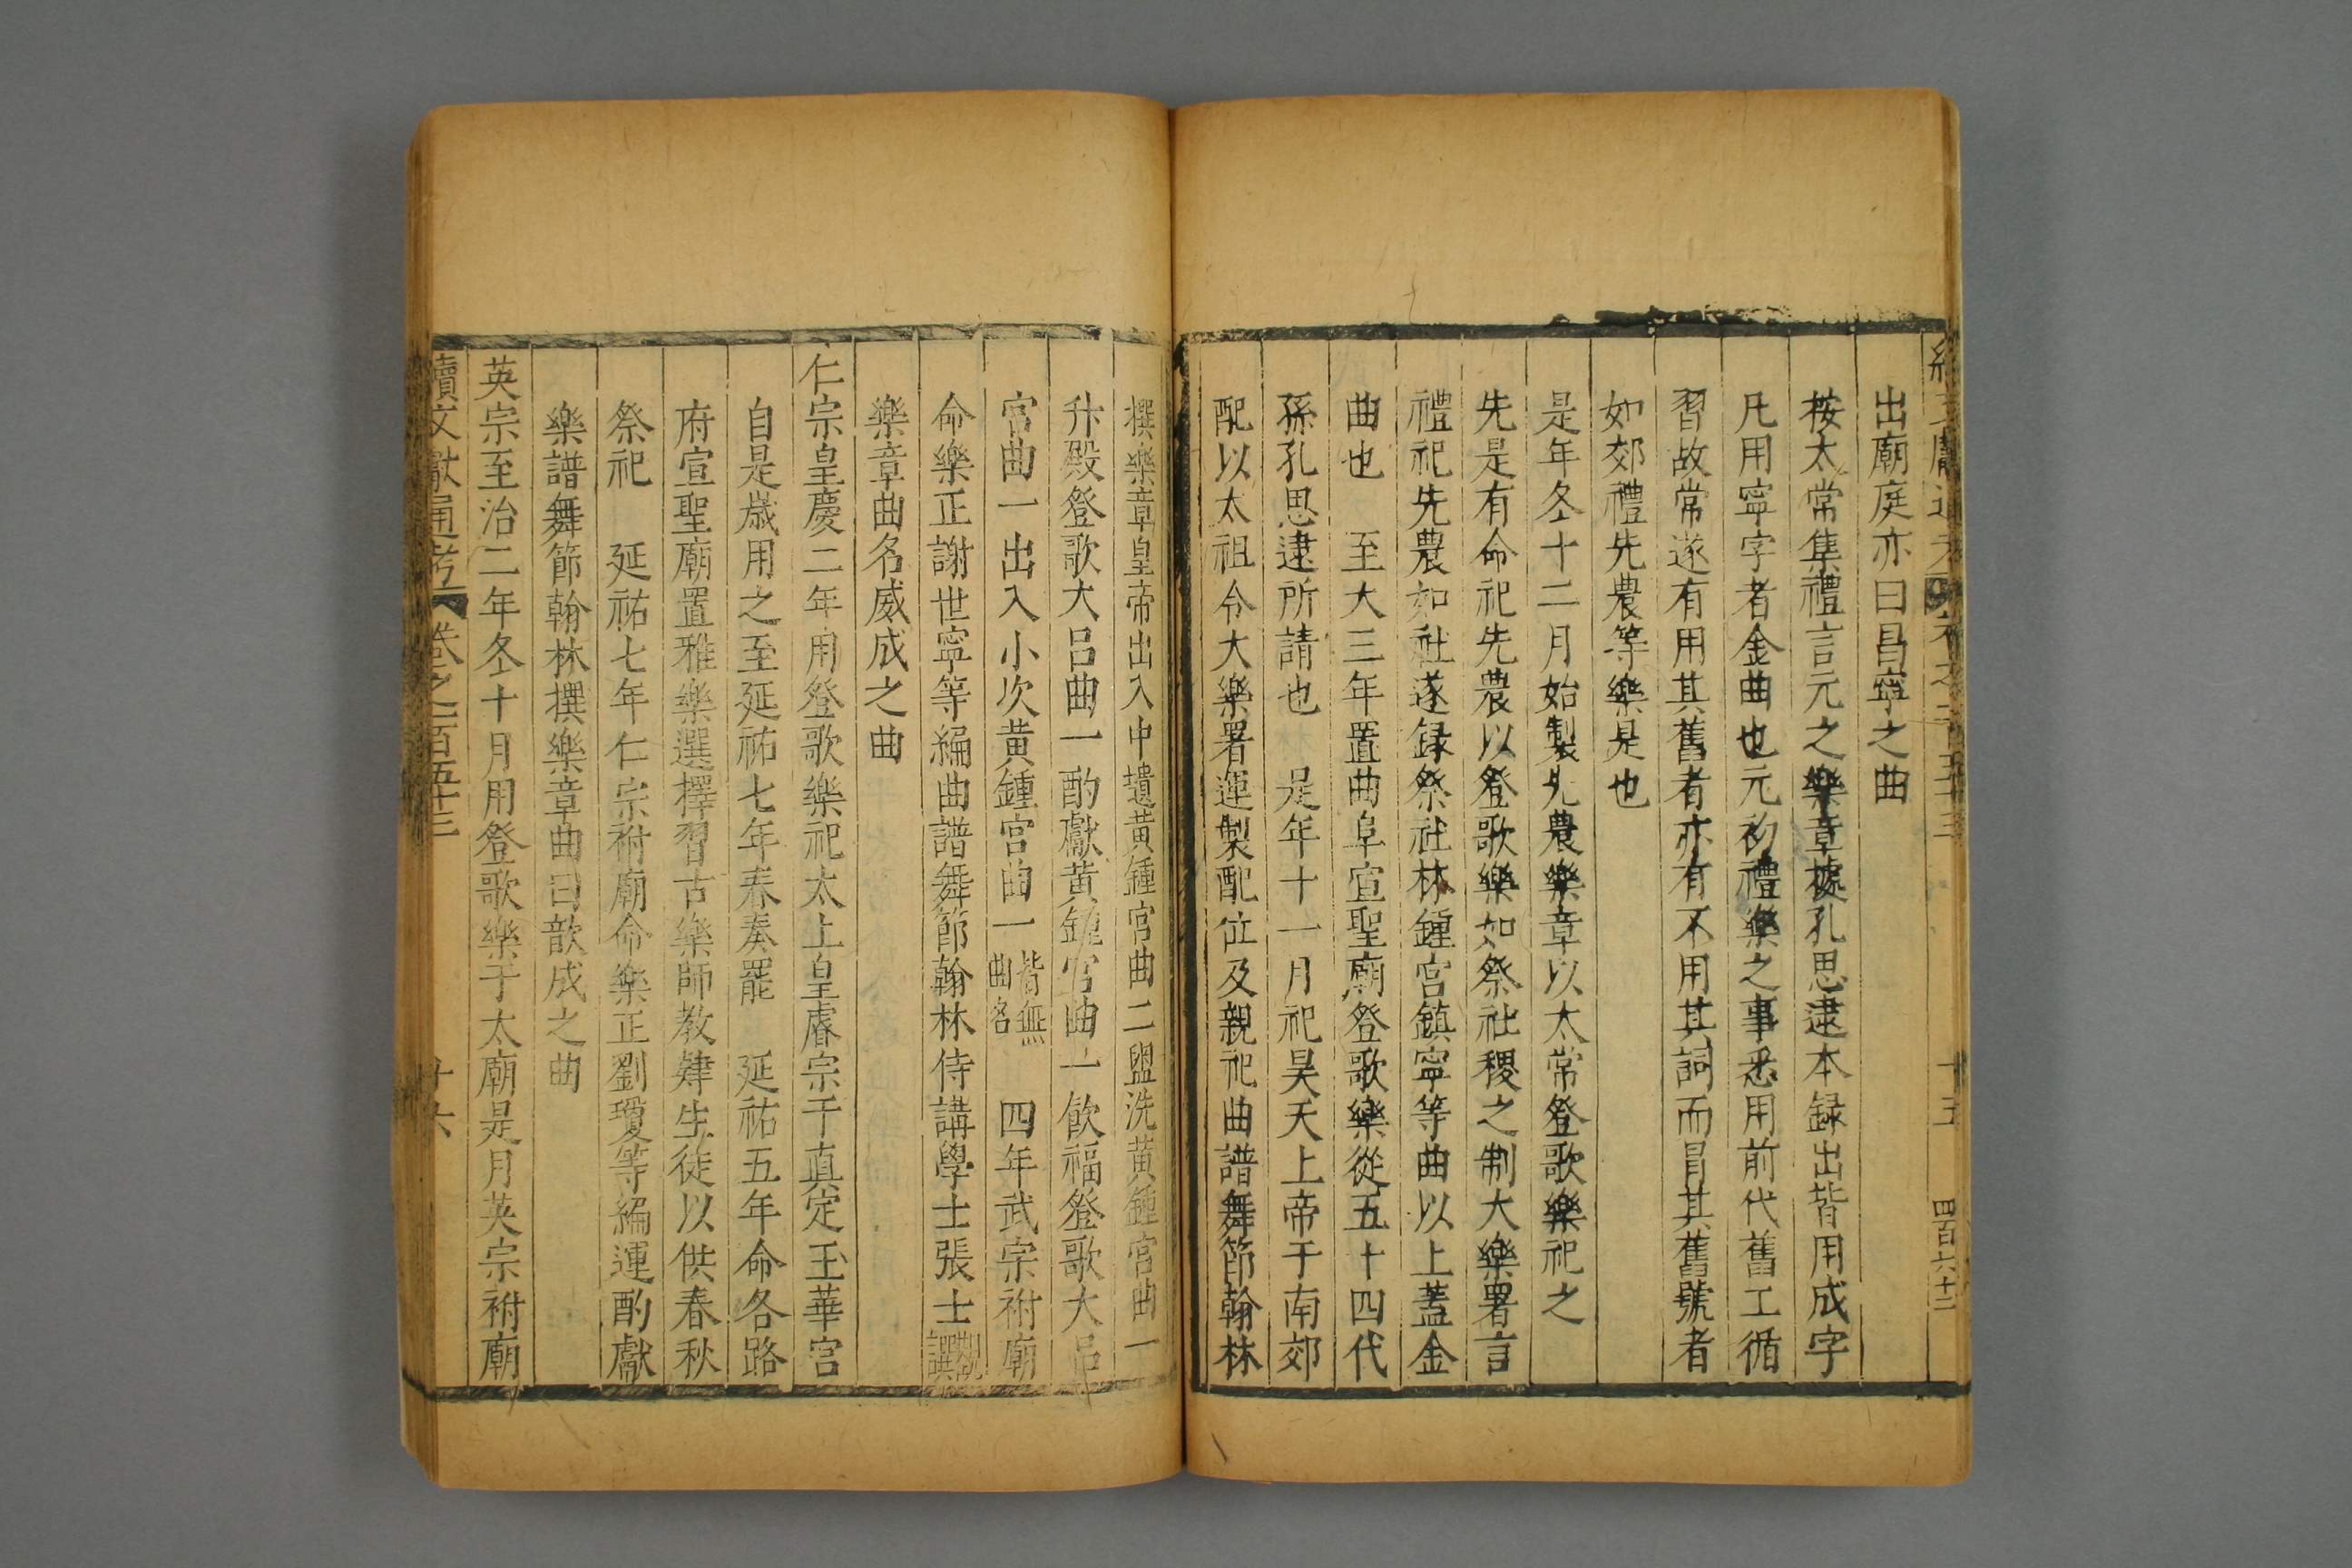 出廟庭亦曰昌寧之曲
按太常集禮言元之樂章據孔思逮本録出皆用成字
凡用寧字者金曲也元初禮樂之事悉用前代舊工循
習故常遂有用其舊者亦有不用其詞而冒其舊號者
如郊禮先農等樂是也
是年冬十二月始製先農樂章以太常登歌樂祀之
先是有命祀先農以登歌樂如祭社稷之制大樂署言
禮祀先農如社遂録祭社林鍾宮鎮寧等曲以上蓋金
曲也　至大三年置曲阜宣聖廟登歌樂從五十四代
孫孔思逮所請也　是年十一月祀昊天上帝于南郊
配以太祖令大樂署運製配位及親祀曲譜舞節翰林
撰樂章皇帝出入中壝黃鍾宮曲二盥洗黃鍾宮曲一
升殿登歌大呂曲一酌獻黃鍾宮曲一飲福登歌大呂
宮曲一出入小次黃鍾宮曲一皆無曲名　四年武宗祔廟
命樂正謝世寧等編曲譜舞節翰林侍講學士張士觀譔
樂章曲名威成之曲
仁宗皇慶二年用登歌樂祀太上皇睿宗于真定玉華宮
自是歲用之至延祐七年春奏罷　延祐五年命各路
府宣聖廟置雅樂選擇習古樂師教肄生徒以供春秋
祭祀　延祐七年仁宗祔廟命樂正劉瓊等編運酌獻
樂譜舞節翰林撰樂章曲曰歆成之曲
英宗至治二年冬十月用登歌樂于太廟是月英宗祔廟
續文獻通考　卷之一百五十三　十六